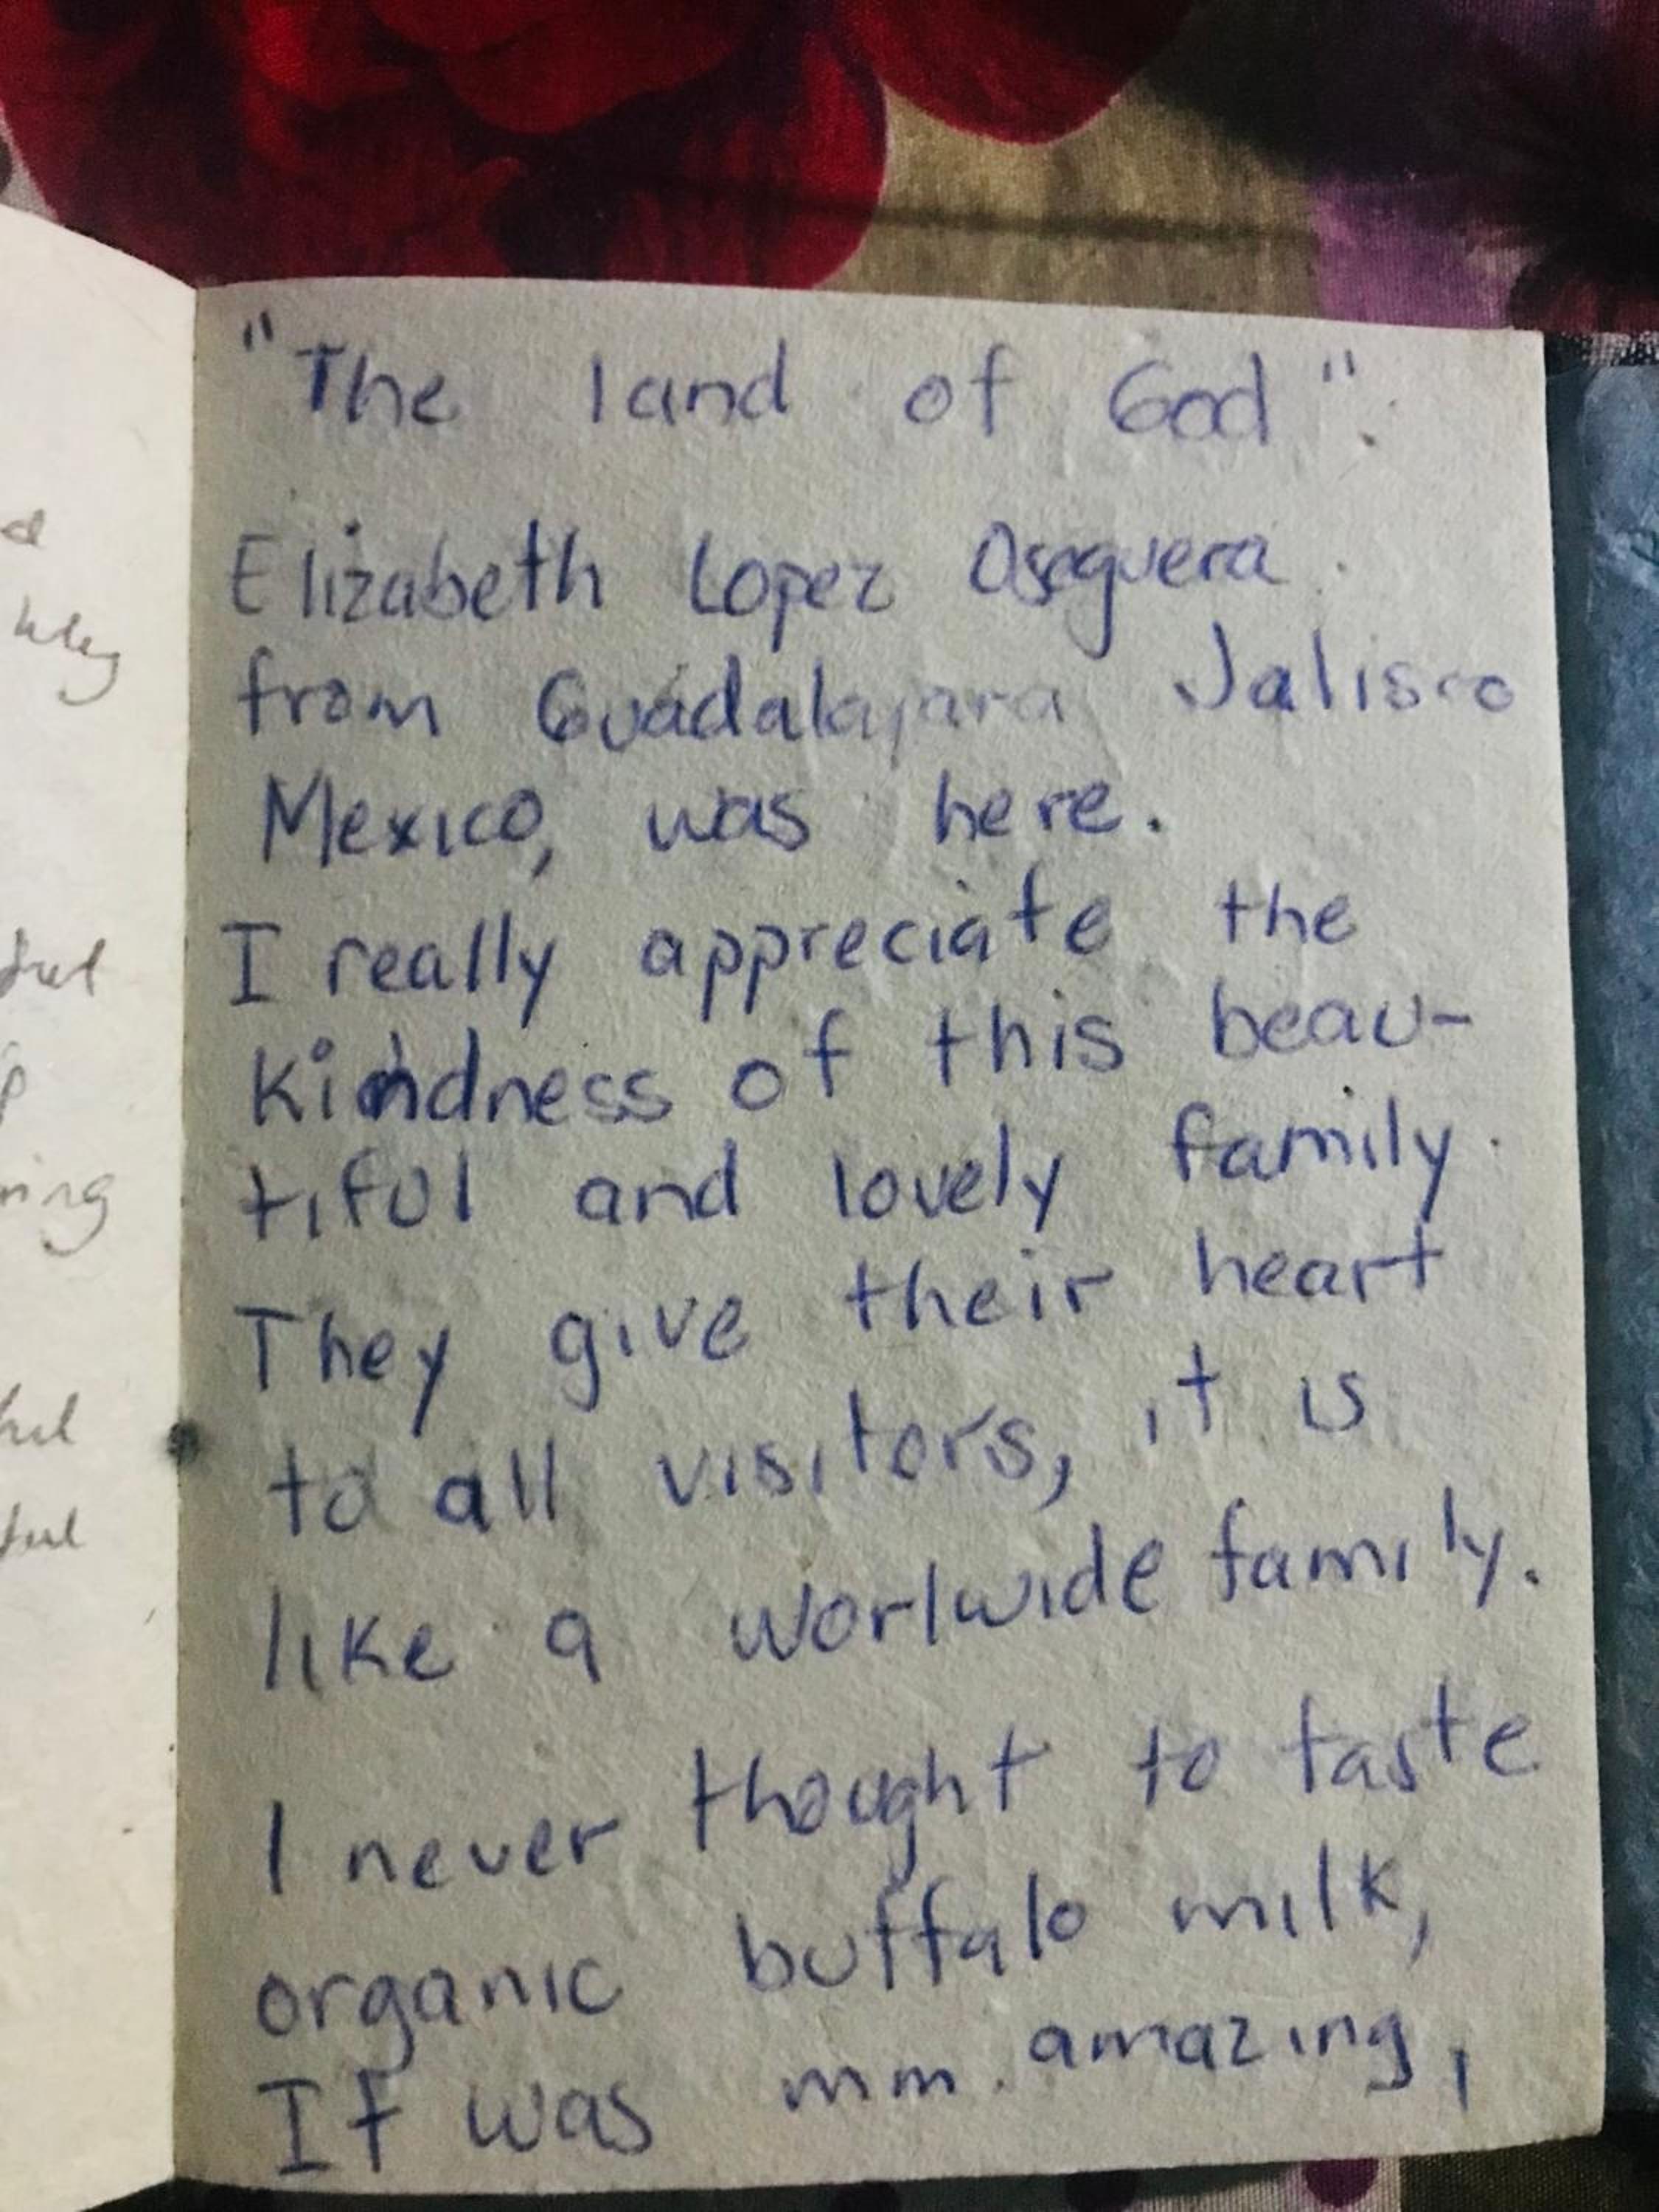 "The land of God".
Elizabeth Lopez Oseguera.
from Guadalajara Jalisco
Mexico, was here.
I really appreciate the
kindness of this beau-
tiful and lovely family.
They give their heart
to all visitors, it is
like a worlwide family.
I never thought to taste
organic buffalo milk,
It was mm. amazing,